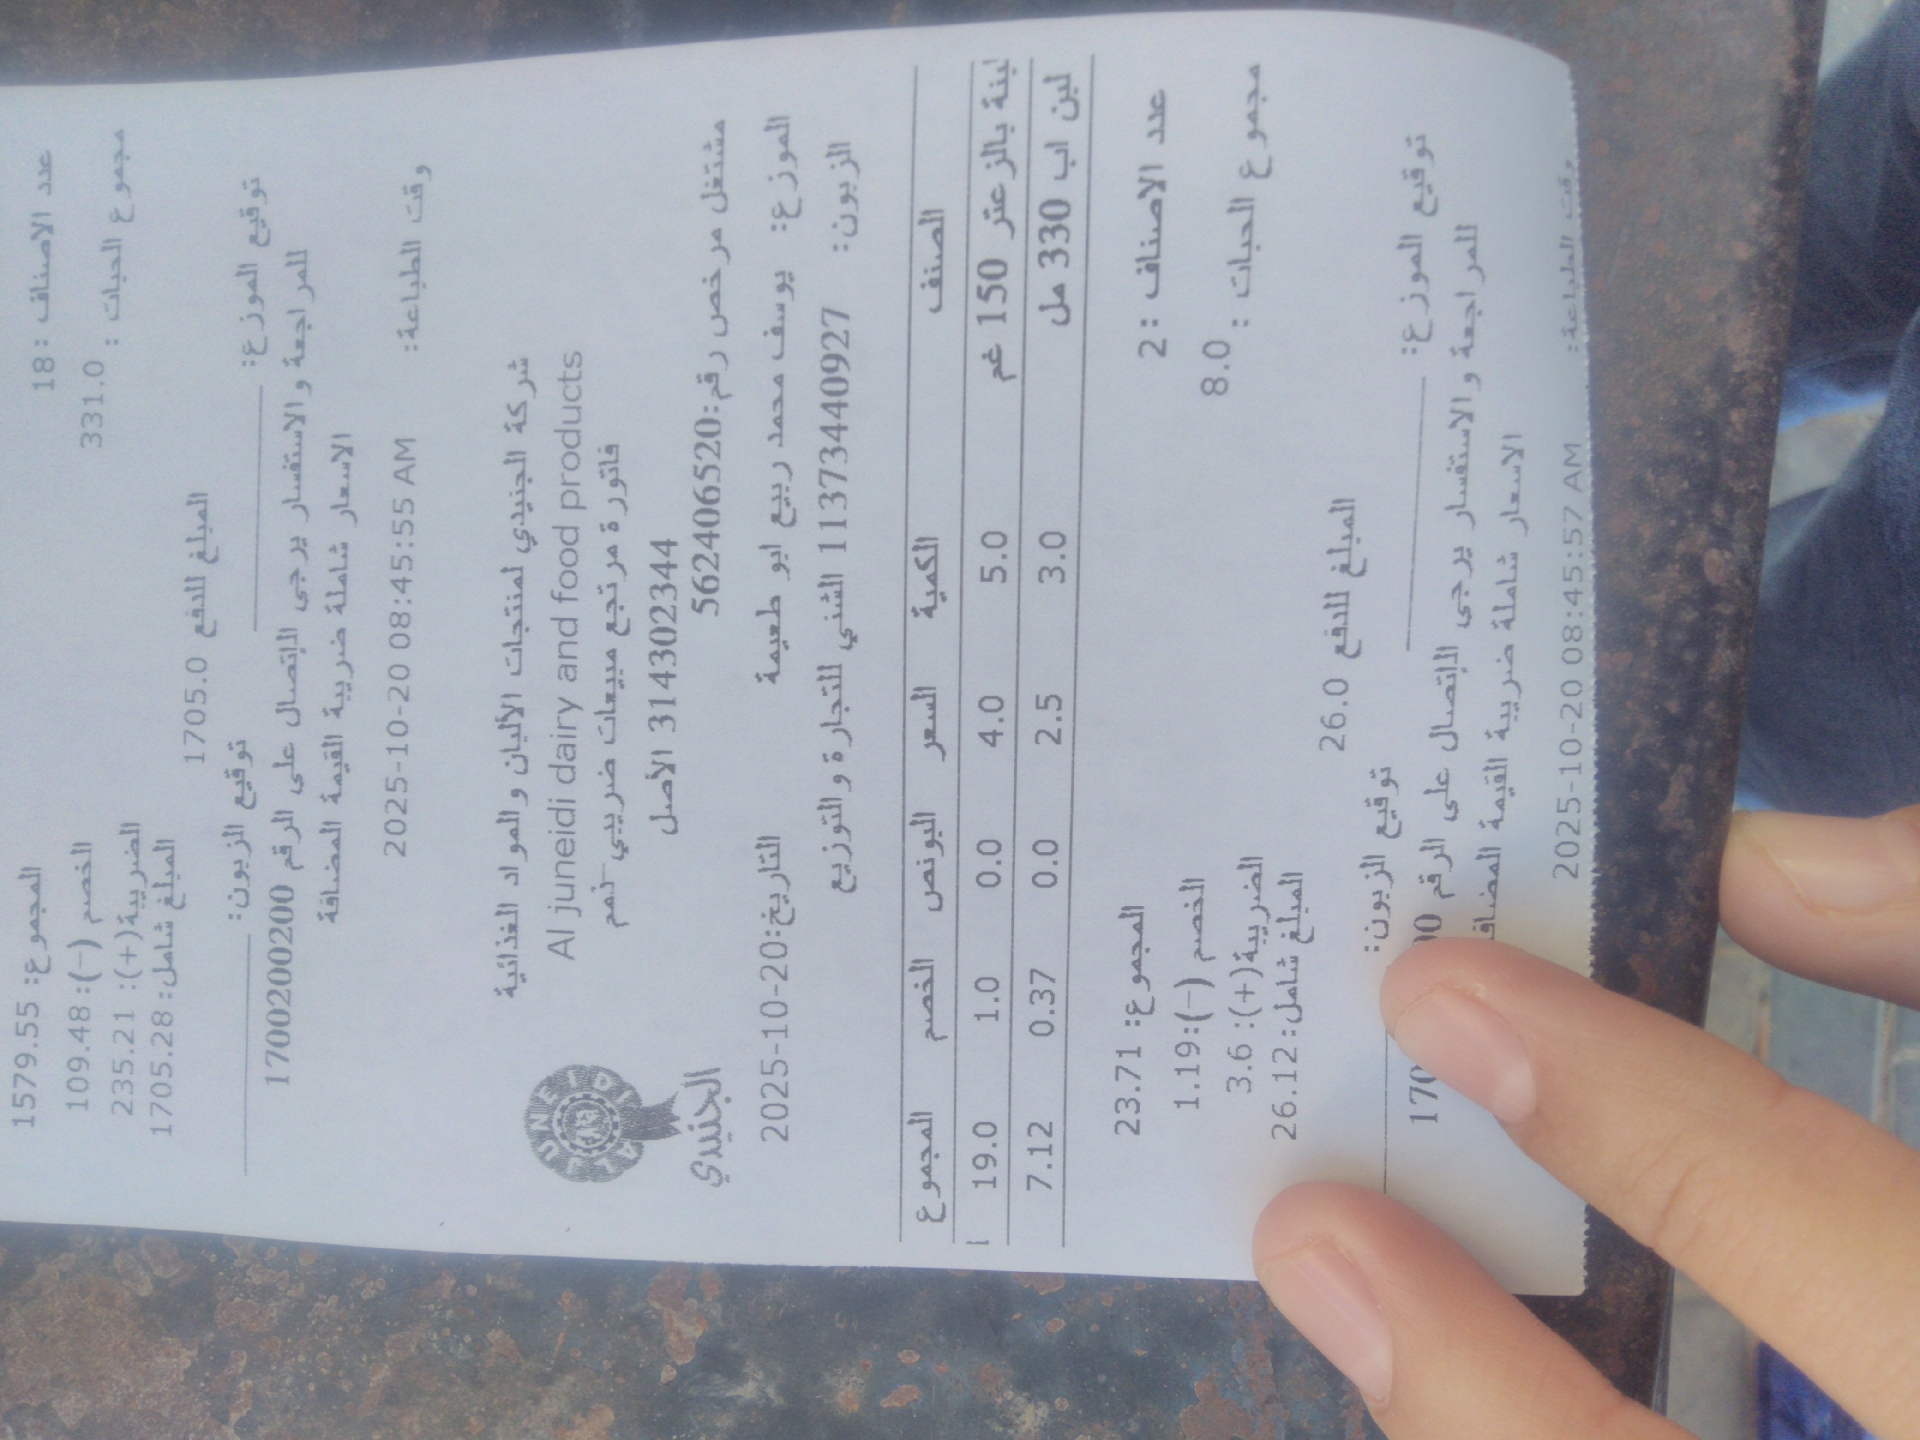 عدد الاصناف : 18
المجموع: 1579.55
مجموع الحبات : 331.0
الخصم (-): 109.48
الضريبة(+): 235.21
المبلغ شامل: 1705.28
المبلغ للدفع 1705.0
توقيع الموزع: ________ توقيع الزبون: ________
للمراجعة والاستفسار يرجى الإتصال على الرقم 1700200200
الاسعار شاملة ضريبة القيمة المضافة
وقت الطباعة: 2025-10-20 08:45:55 AM
شركة الجنيدي لمنتجات الألبان والمواد الغذائية
Al juneidi dairy and food products
فاتورة مرتجع مبيعات ضريبي-نمم
314302344 الأصل
مشتغل مرخص رقم:562406520
AL JUNEIDI
الجنيدي
الموزع: يوسف محمد ربيع ابو طعيمة التاريخ:2025-10-20
الزبون: 1137344092​7 الشني للتجارة والتوزيع
الصنف الكمية السعر البونص الخصم المجموع
لبنة بالزعتر 150 غم 5.0 4.0 0.0 1.0 19.0
لبن اب 330 مل 3.0 2.5 0.0 0.37 7.12
عدد الاصناف : 2
المجموع: 23.71
مجموع الحبات : 8.0
الخصم (-):1.19
الضريبة(+): 3.6
المبلغ شامل: 26.12
المبلغ للدفع 26.0
توقيع الموزع: ________ توقيع الزبون: ________
للمراجعة والاستفسار يرجى الإتصال على الرقم
الاسعار شاملة ضريبة القيمة
وقت الطباعة: 2025-10-20 08:45:57 AM